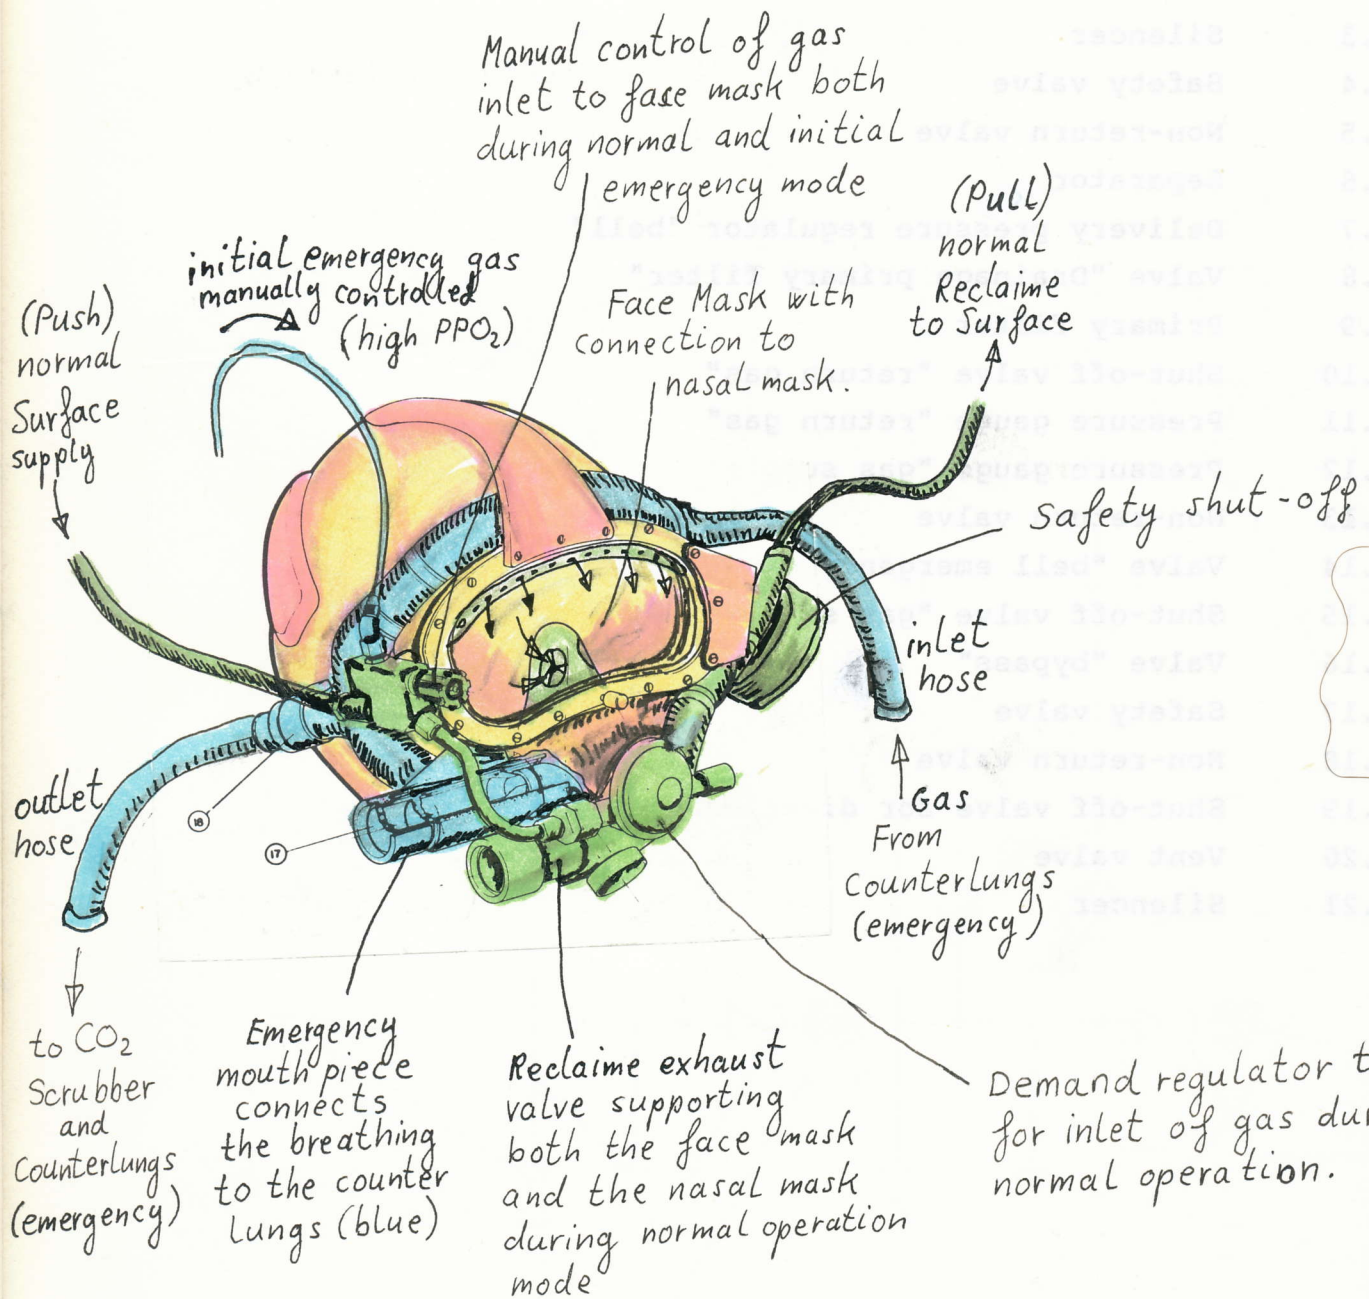 Manual control of gas
inlet to fase mask both
during normal and initial
emergency mode
(Pull)
normal
Reclaime
to Surface
initial emergency gas
manually controlled
(high PPO₂)
Face Mask with
connection to
nasal mask.
(Push)
normal
Surface
supply
Safety shut-off
inlet
hose
Gas
From
Counterlungs
(emergency)
outlet
hose
18
17
to CO₂
Scrubber
and
Counterlungs
(emergency)
Emergency
mouth piece
connects
the breathing
to the counter
lungs (blue)
Reclaime exhaust
valve supporting
both the face mask
and the nasal mask
during normal operation
mode
Demand regulator
for inlet of gas
normal operation.